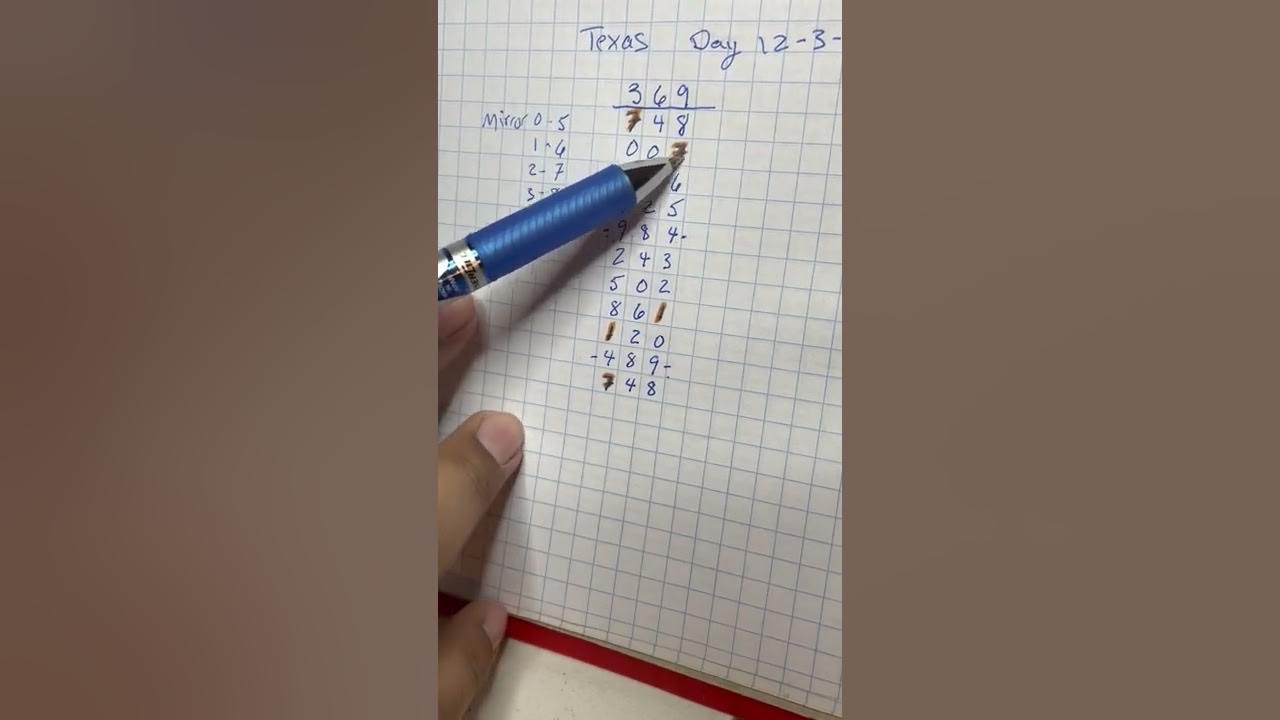 Texas Day 12-3-
3 6 9
Mirror 0-5 7 4 8
1-6 0 0 7
2-7 6
3- 2 5
-9 8 4-
2 4 3
5 0 2
8 6 1
1 2 0
-4 8 9-
7 4 8